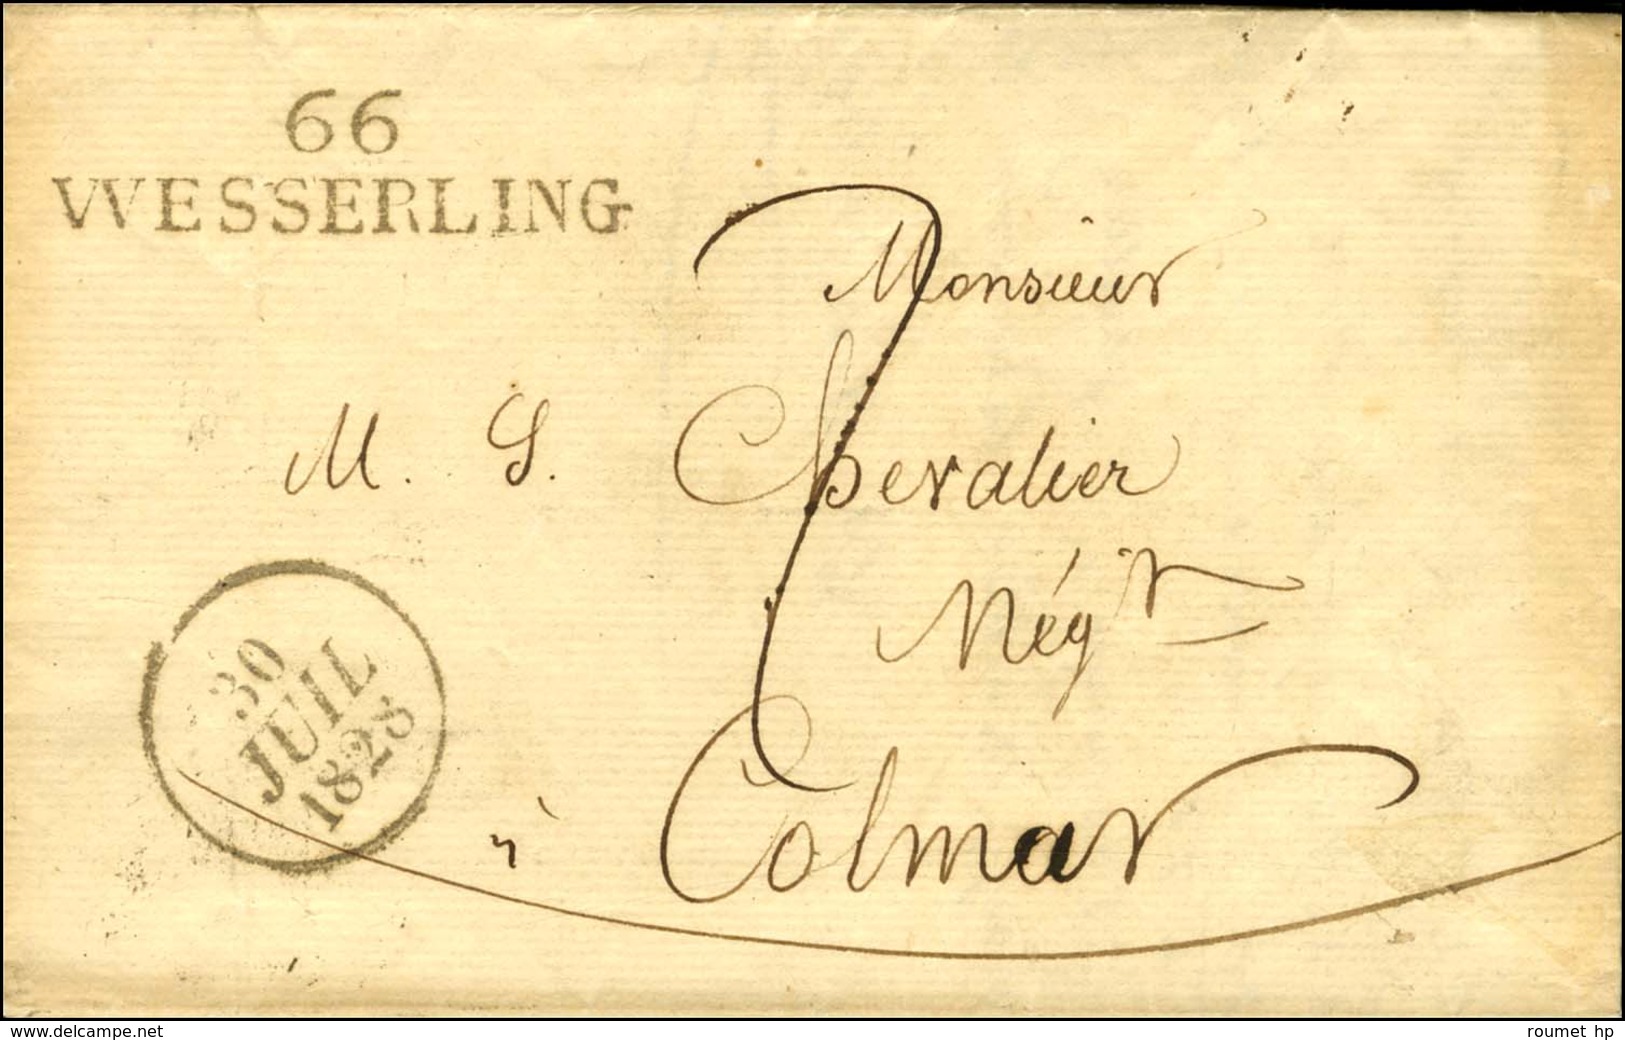 66
WESSERLING
Monsieur
M. S. Chevalier
Nég.r
30
JUIL
1828
à Colmar
www.delcampe.net
roumet hp